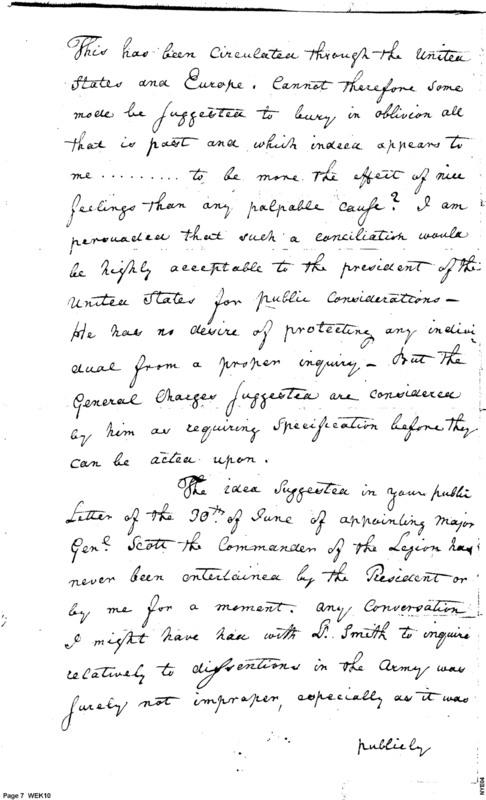 This has been Circulated through the United
States and Europe. Cannot therefore some
mode be suggested to bury in oblivion all
that is past and which indeed appears to
me ......... to be more the effect of nice
feelings than any palpable cause? I am
persuaded that such a conciliation would
be highly acceptable to the president of the
United States for public Considerations —
He has no desire of protecting any indivi-
dual from a proper inquiry — But the
General Charges suggested are considered
by him as requiring Specification before they
can be acted upon.
The idea Suggested in your public
Letter of the 30th. of June of appointing Major
Genl. Scott the Commander of the Legion has
never been entertained by the President or
by me for a moment. Any Conversation
I might have had with D. Smith to inquire
relatively to dissentions in the Army was
surely not improper, especially as it was
publicly
Page 7 WEK10